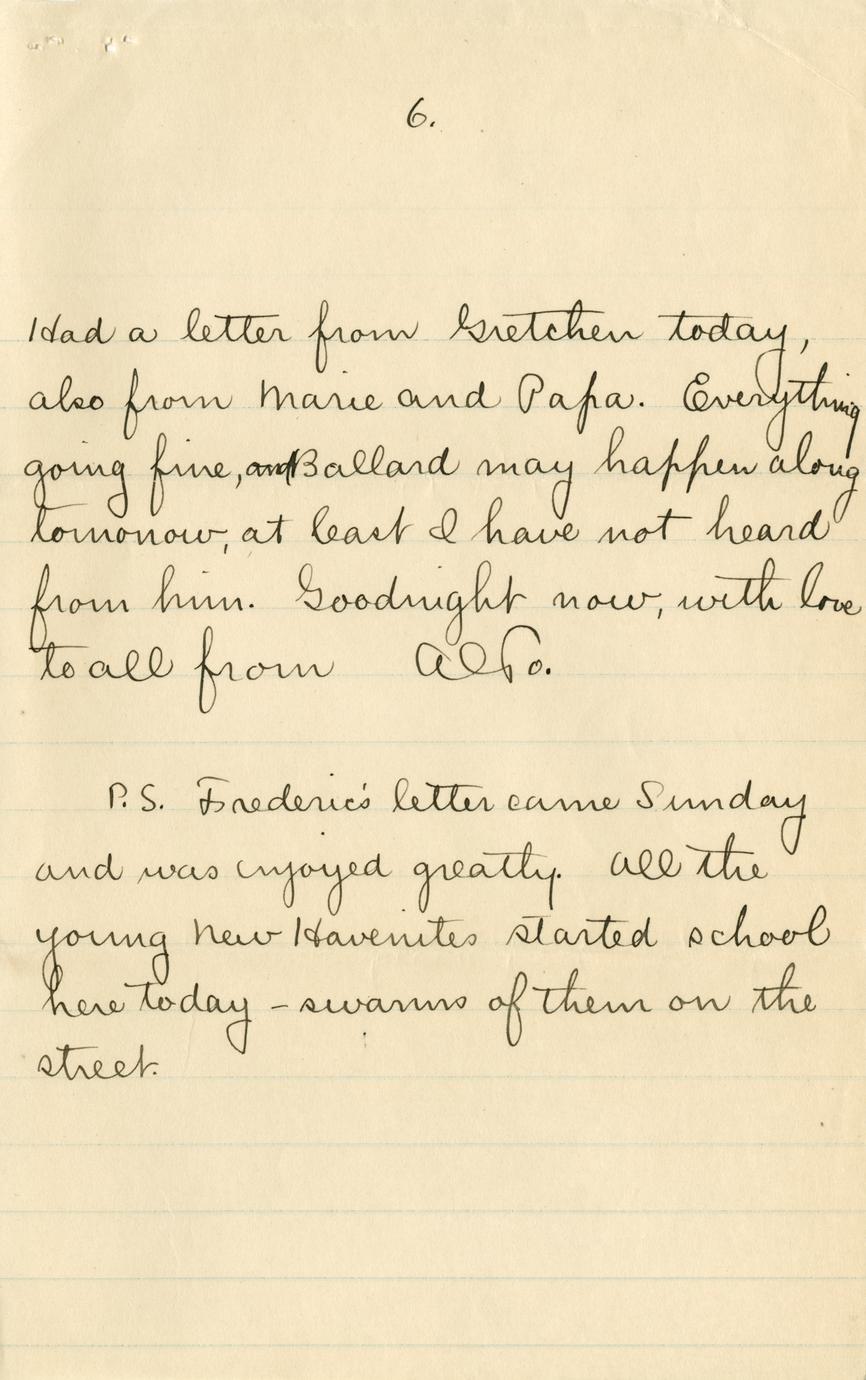 6.
Had a letter from Gretchen today,
also from Marie and Papa. Everything
going fine, and Ballard may happen along
tomorrow, at least I have not heard
from him. Goodnight now, with love
to all from
P.S. Frederic's letter came Sunday
and was enjoyed greatly. All the
young New Havenites started school
here today - swarms of them on the
street.